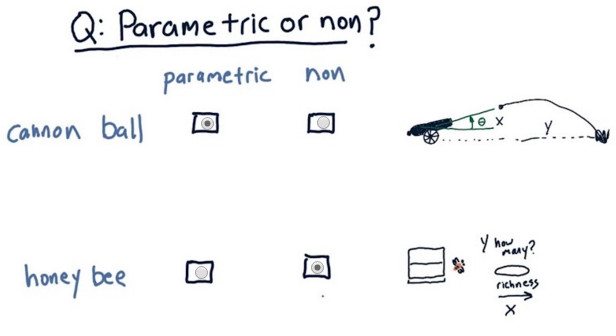 Q: Parametric or non?
parametric non
cannon ball
θ x
y
honey bee
y how many?
richness
x